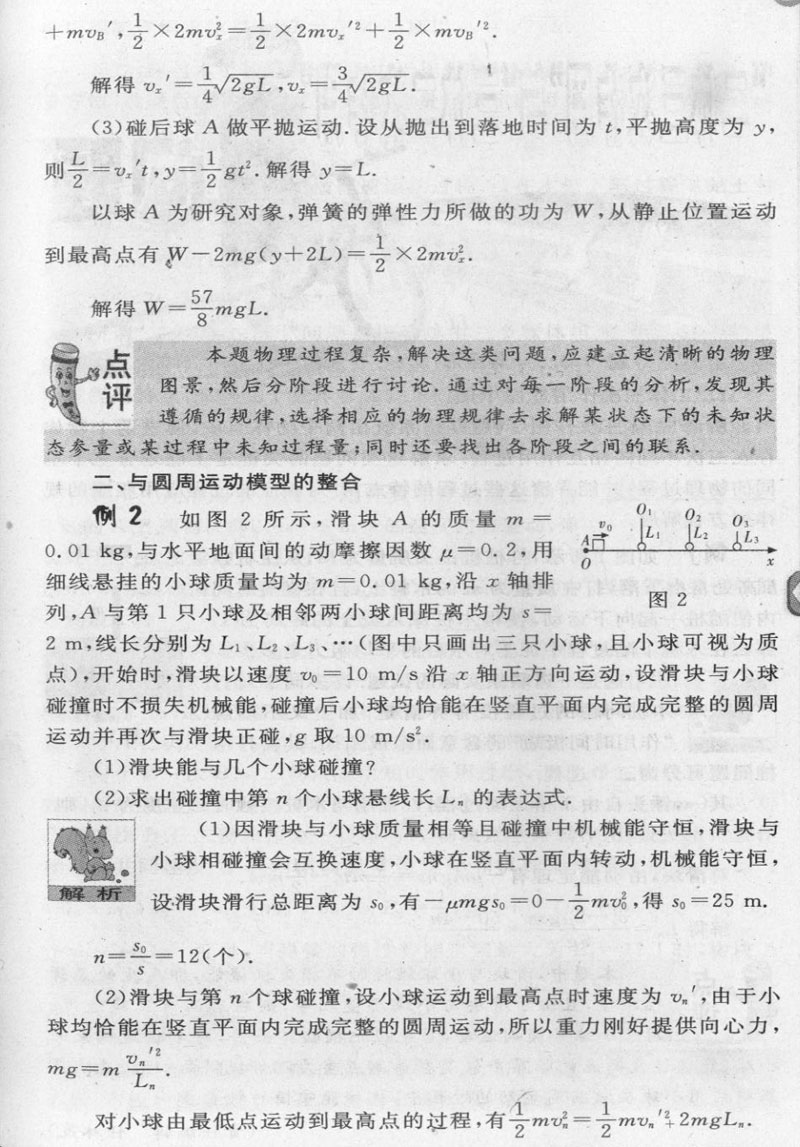 +mv_B′,1/2×2mv_x²=1/2×2mv_x′²+1/2×mv_B′².
解得 v_x′=1/4√2gL,v_x=3/4√2gL.
(3)碰后球 A 做平抛运动.设从抛出到落地时间为 t,平抛高度为 y,
则L/2=v_x′t,y=1/2gt².解得 y=L.
以球 A 为研究对象,弹簧的弹性力所做的功为 W,从静止位置运动
到最高点有 W−2mg(y+2L)=1/2×2mv_x².
解得 W=57/8mgL.
点评
本题物理过程复杂,解决这类问题,应建立起清晰的物理
图景,然后分阶段进行讨论.通过对每一阶段的分析,发现其
遵循的规律,选择相应的物理规律去求解某状态下的未知状
态参量或某过程中未知过程量;同时还要找出各阶段之间的联系.
二、与圆周运动模型的整合
例 2 如图 2 所示,滑块 A 的质量 m=
0.01 kg,与水平地面间的动摩擦因数 μ=0.2,用
细线悬挂的小球质量均为 m=0.01 kg,沿 x 轴排
列,A 与第 1 只小球及相邻两小球间距离均为 s=
A v₀ O₁ O₂ O₃ L₁ L₂ L₃ O x
图 2
2 m,线长分别为 L₁、L₂、L₃、…(图中只画出三只小球,且小球可视为质
点),开始时,滑块以速度 v₀=10 m/s 沿 x 轴正方向运动,设滑块与小球
碰撞时不损失机械能,碰撞后小球均恰能在竖直平面内完成完整的圆周
运动并再次与滑块正碰,g 取 10 m/s².
(1)滑块能与几个小球碰撞?
(2)求出碰撞中第 n 个小球悬线长 Lₙ 的表达式.
解析
(1)因滑块与小球质量相等且碰撞中机械能守恒,滑块与
小球相碰撞会互换速度,小球在竖直平面内转动,机械能守恒,
设滑块滑行总距离为 s₀,有−μmgs₀=0−1/2mv₀²,得 s₀=25 m.
n=s₀/s=12(个).
(2)滑块与第 n 个球碰撞,设小球运动到最高点时速度为 vₙ′,由于小
球均恰能在竖直平面内完成完整的圆周运动,所以重力刚好提供向心力,
mg=m vₙ′²/Lₙ.
对小球由最低点运动到最高点的过程,有1/2mvₙ²=1/2mvₙ′²+2mgLₙ.